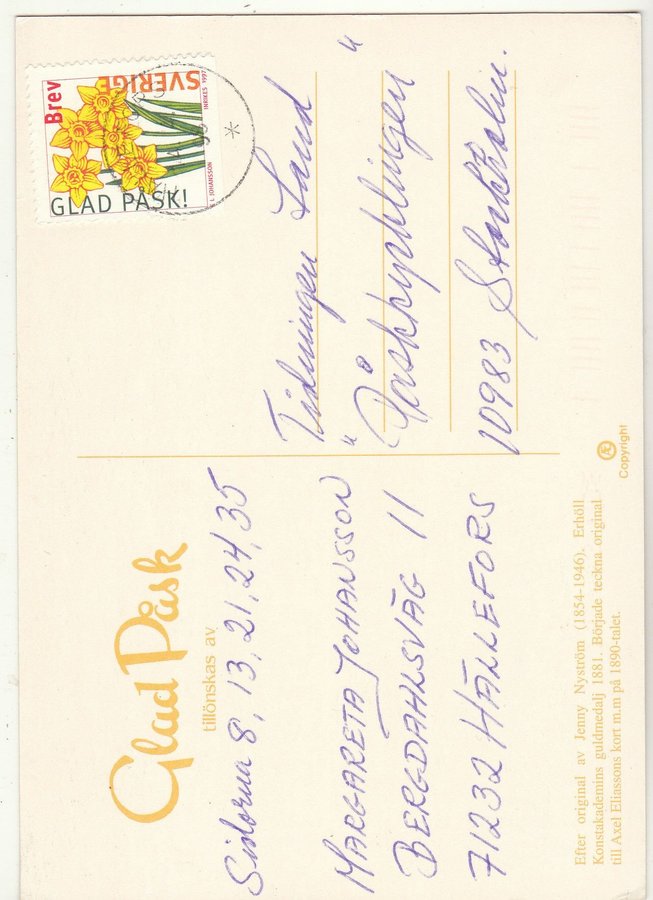 Glad Påsk
tillönskas av
Sidorna 8, 13, 21, 24, 35
MARGARETA JOHANSSON
BERGDAHLSVÄG 11
71232 HÄLLEFORS
Efter original av Jenny Nyström (1854-1946). Erhöll
Konstakademins guldmedalj 1881. Började teckna original
till Axel Eliassons kort m.m på 1890-talet.
Æ
Copyright
Brev
SVERIGE
INRIKES 1997
L JOHANSSON
GLAD PÅSK!
Tidningen Land
"Påskkycklingen"
10983 Stockholm.